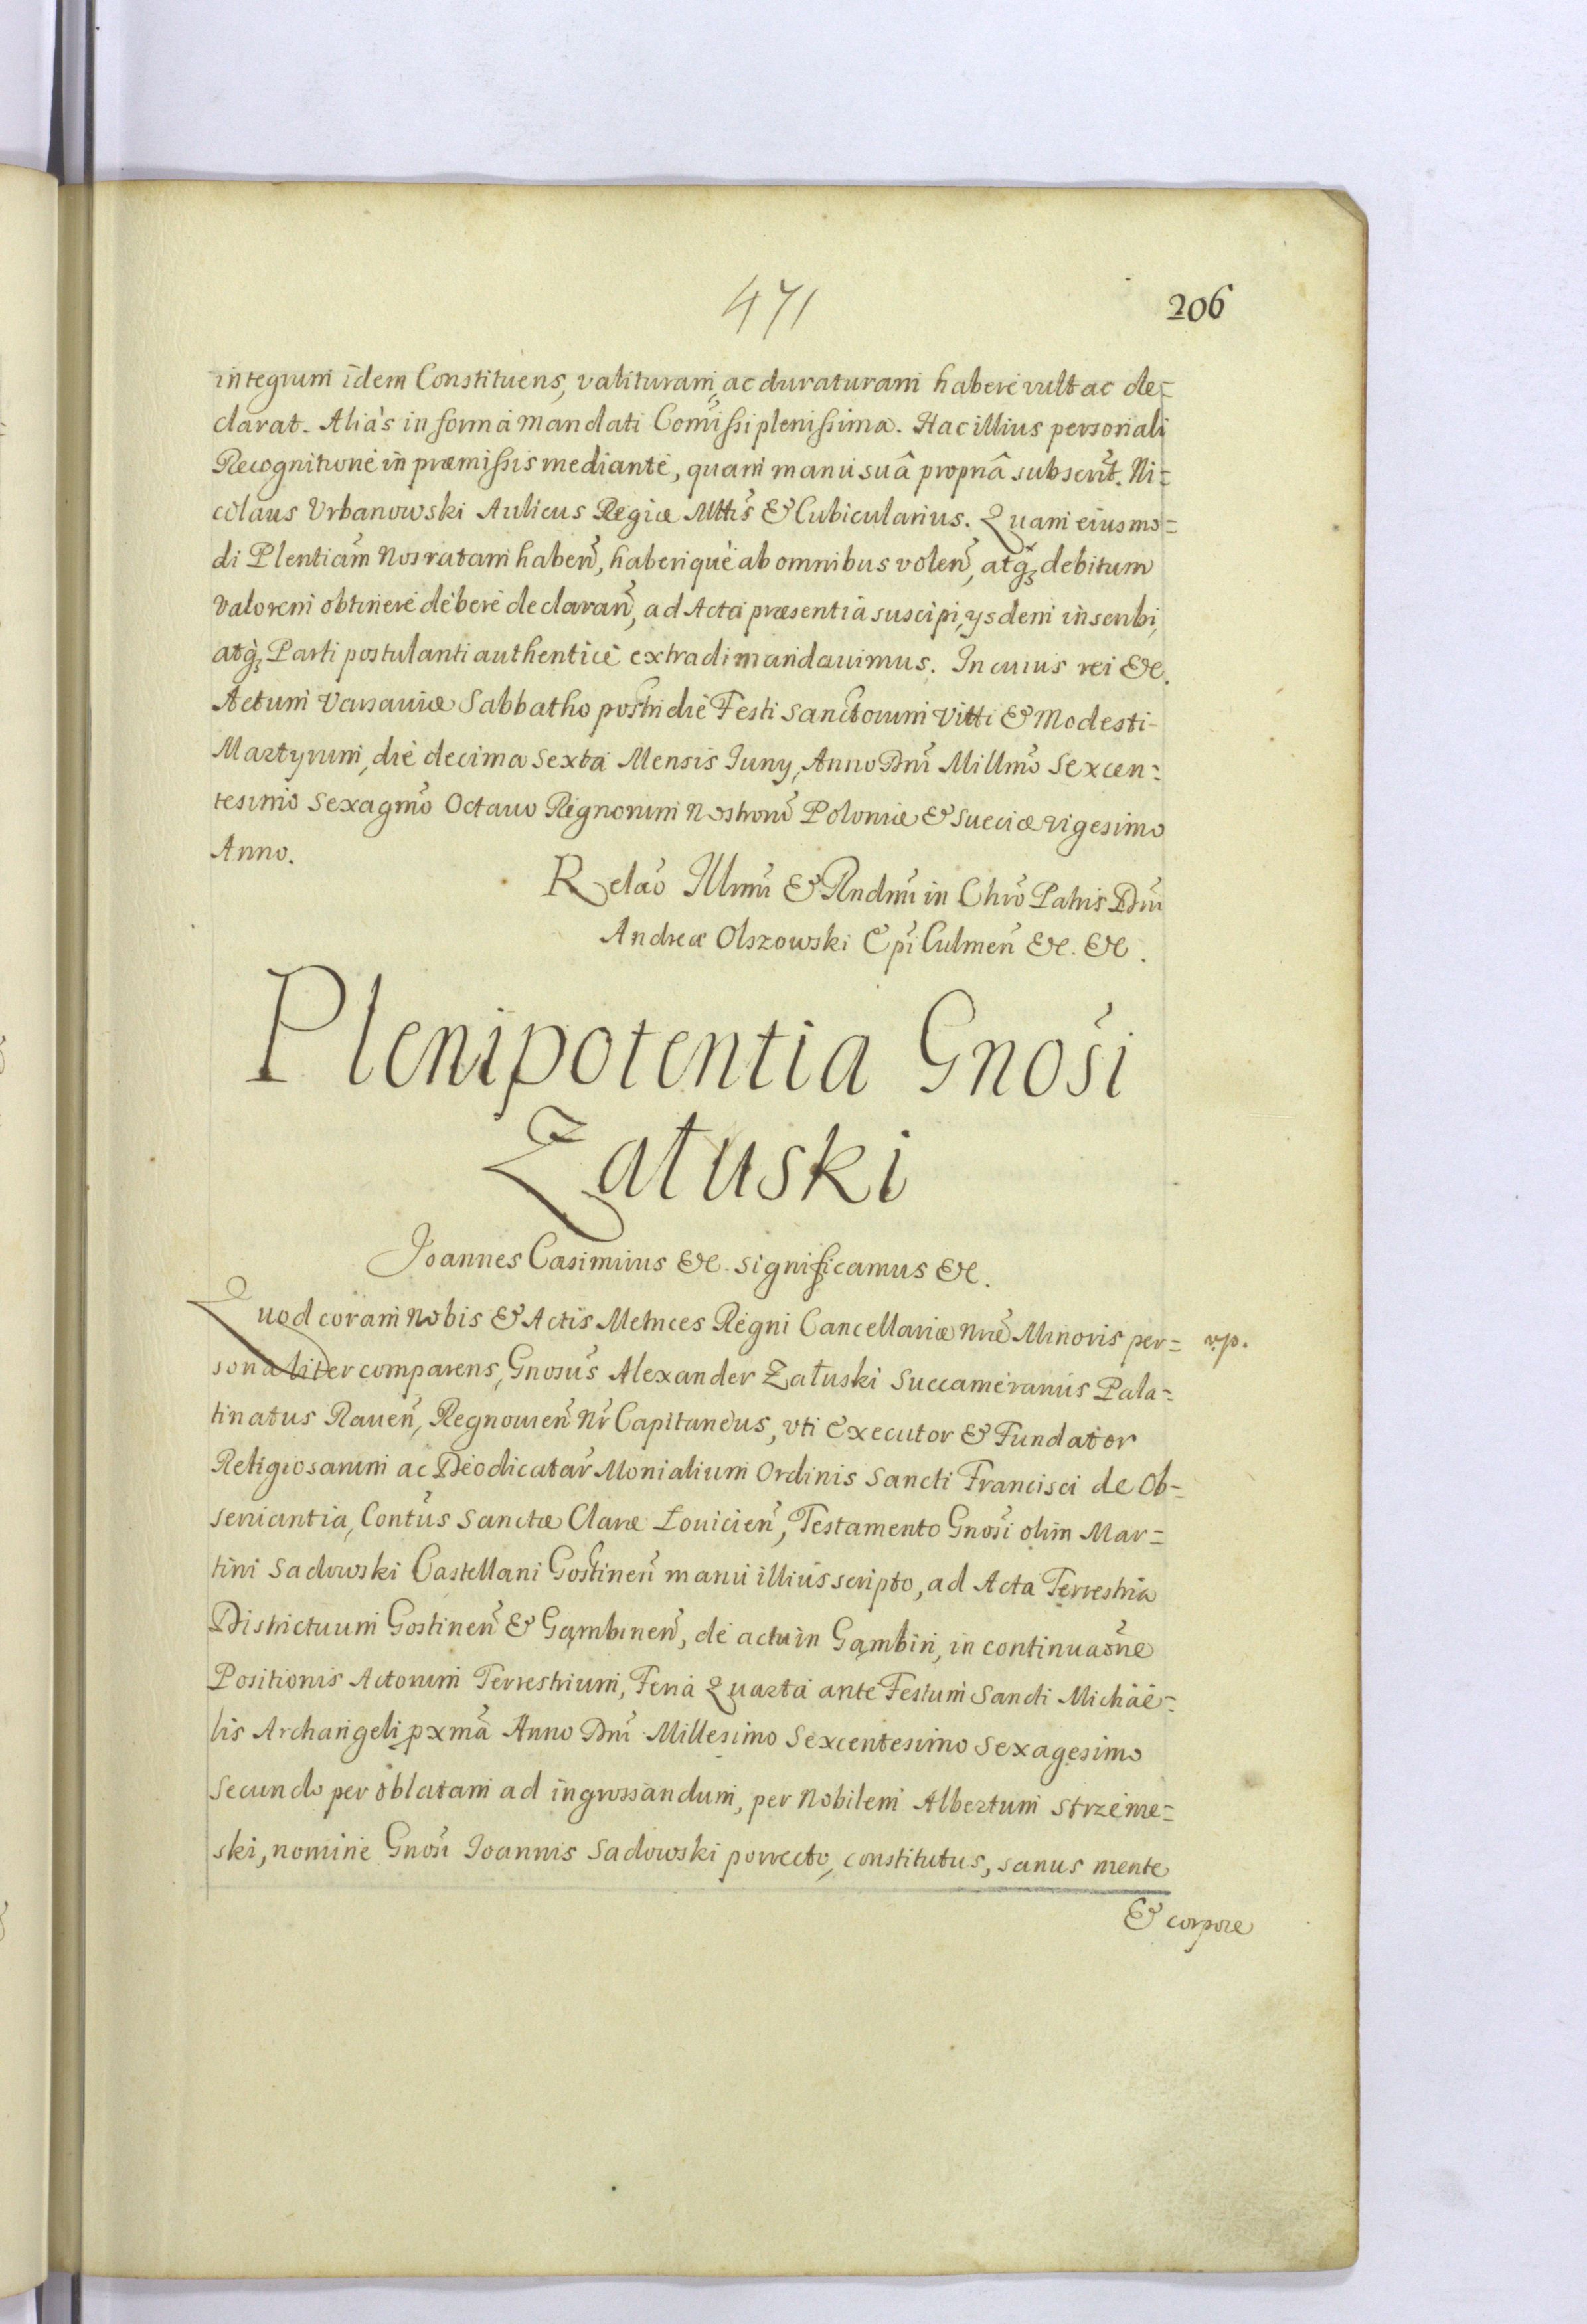 471
206
integrum idem Constituens, valituram, ac duraturam haberè vult ac de=
clarat. Aliàs in formà mandati Com̃issi plenissima. Hac illius personali
Recognitionè in præmissis mediantè, quam manu suâ propriâ subscrit̃. Ni=
colaus Vrbanowski Aulicus Regiæ Mttis̃ & Cubicularius. Quam eiusmo=
di Plentiam̃ Nos ratam habeñ, haberiquè ab omnibus voleñ, atq́ꝫ debitum
valorem obtinerè débere declarañ, ad Acta præsentia suscipi, ysdem inscribi,
atq́ꝫ Parti postulanti authenticè extradi mandauimus. In cuius rei &c.
Actum Varsauiæ Sabbatho postridiè Festi Sanctorum Vitti & Modesti
Martyrum, diè decima Sexta Mensis Iuny, Anno Dnĩ Millmõ Sexcen=
tesimo Sexagmõ Octauo Regnorum Nostrorũ Poloniæ & Sueciæ vigesimo
Anno.
Relaõ Illmĩ & Rndmĩ in Chrõ Patris Dnĩ
Andreæ Olszowski Epĩ Culmeñ &c. &c.
Plenipotentia Gnosĩ
Załuski
Joannes Casimirus &c. significamus &c.
Quod coram Nobis & Actis Metrices Regni Cancellariæ Nrẽ Minoris per= rp.
sonaliter comparens, Gnosus̃ Alexander Załuski Succamerarius Pala=
tinatus Raueñ, Regnouieñ Nr̃ Capitaneus, vti Executor & Fundator
Religiosarum ac Dèodicatar̃ Monialium Ordinis Sancti Francisci de Ob=
seruantia, Contus̃ Sanctæ Claræ Louicień, Testamento Gnosĩ olim Mar=
tini Sadowski Castellani Gostineñ manu illius scripto, ad Acta Terrestria
Districtuum Gostineñ & Gąmbineñ, dè actu in Gąmbin, in continuaõne
Positionis Actorum Terrestrium, Feria Quarta ante Festum Sancti Michaë=
lis Archangeli pxmã Anno Dnĩ Millesimo Sexcentesimo Sexagesimo
Secundo per oblatam ad ingrossandum, per Nobilem Albertum Strzeme=
ski, nominè Gnosĩ Joannis Sadowski porrecto, constitutus, sanus mente
& corpore